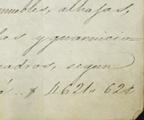 muebles, alhajas,
os y guarnicio
uadros, segun
ó..$ 4621 62½